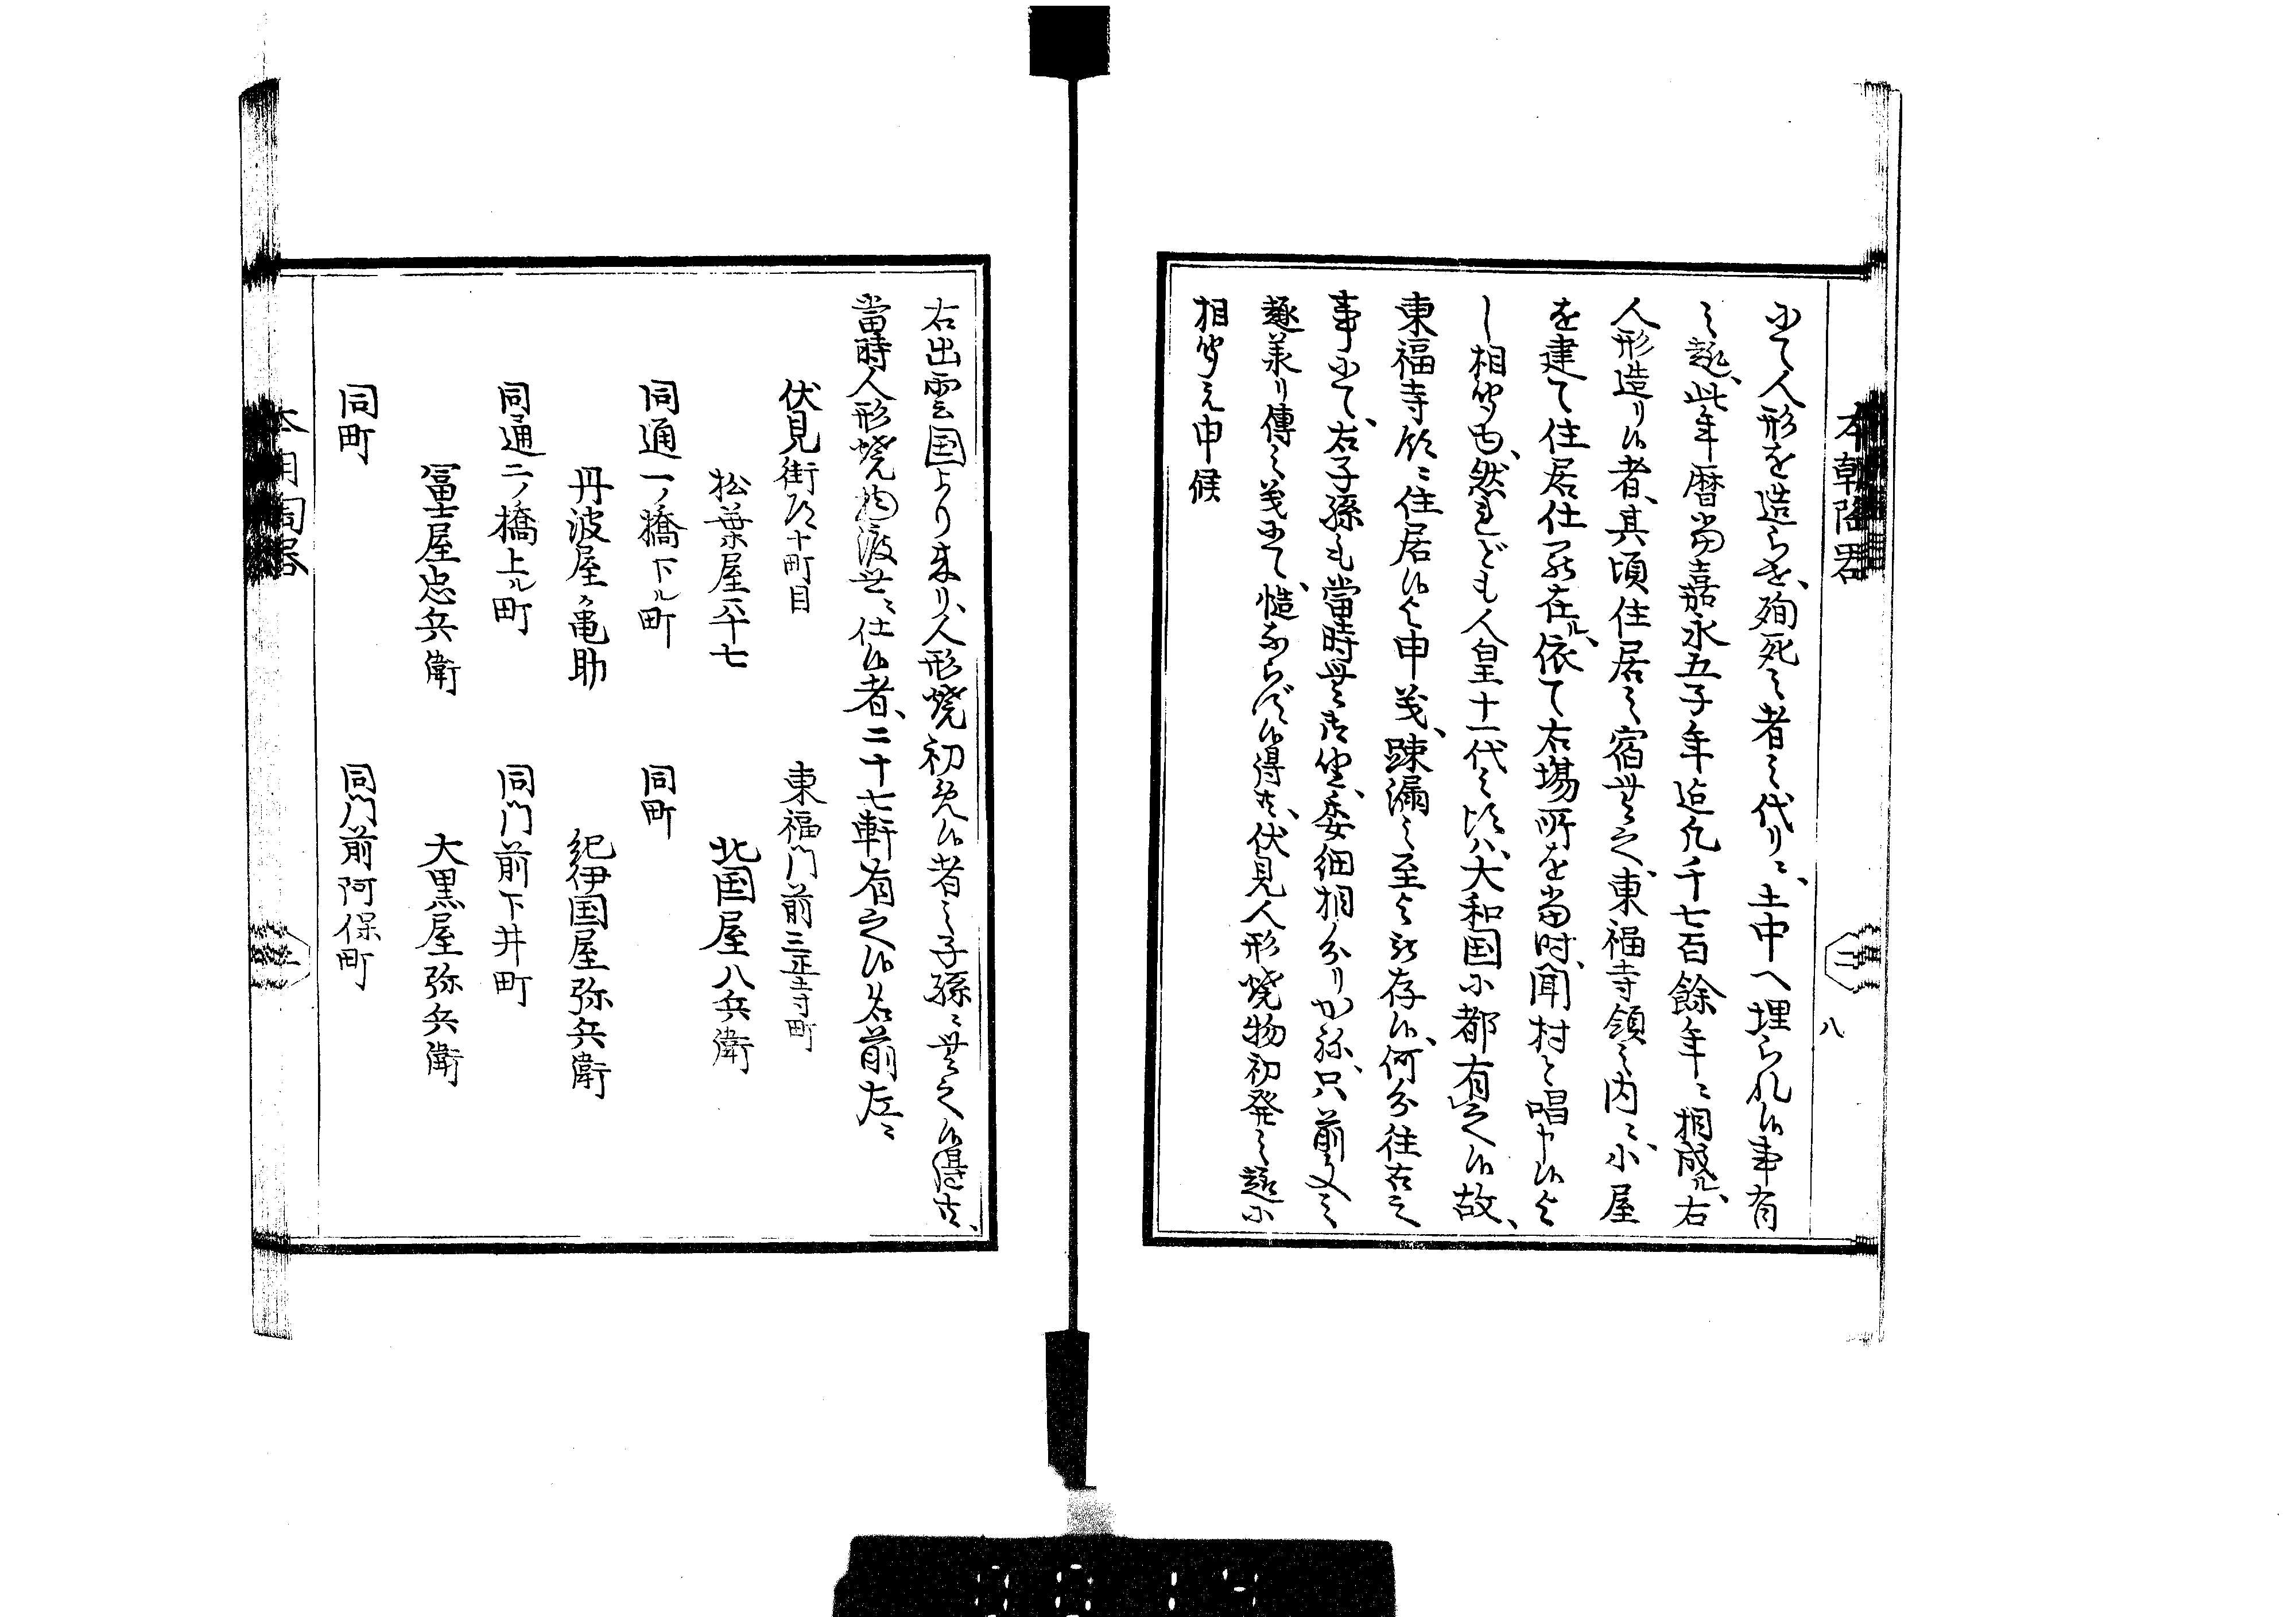 本朝陶器
二
八
にて人形を造らせ、殉死之者之代りニ、土中へ埋られ候事有
之趣、此年暦当嘉永五子年迄凡千七百餘年ニ相成ル、右
人形造り候者、其頃住居之宿無之、東福寺領之内ニ、小屋
を建て住居仕罷在ル、依て右場所を当時、聞村と唱申候と
し相聞る、然れども人皇十一代之比ハ、大和国に都有之候故、
東福寺辺ニ住居候と申義、踈漏之至と被存候、何分往古之
事にて、右子孫も當時無御座、委細相分りかね、只前文之
趣承り傳之義にて、慥ならず候得共、伏見人形焼物初発之趣に
相聞え申候
右出雲国より来り、人形焼初免候者之子孫ニ無之候得共、
當時人形焼物渡世ニ仕候者、二十七軒有之候名前左ニ
伏見街道十町目
松葉屋平七
同通一ノ橋下ル町
丹波屋亀助
同通二ノ橋上ル町
冨士屋忠兵衛
同町
東福門前三正寺町
北国屋八兵衛
同町
紀伊国屋弥兵衛
同門前下井町
大黒屋弥兵衛
同門前阿保町